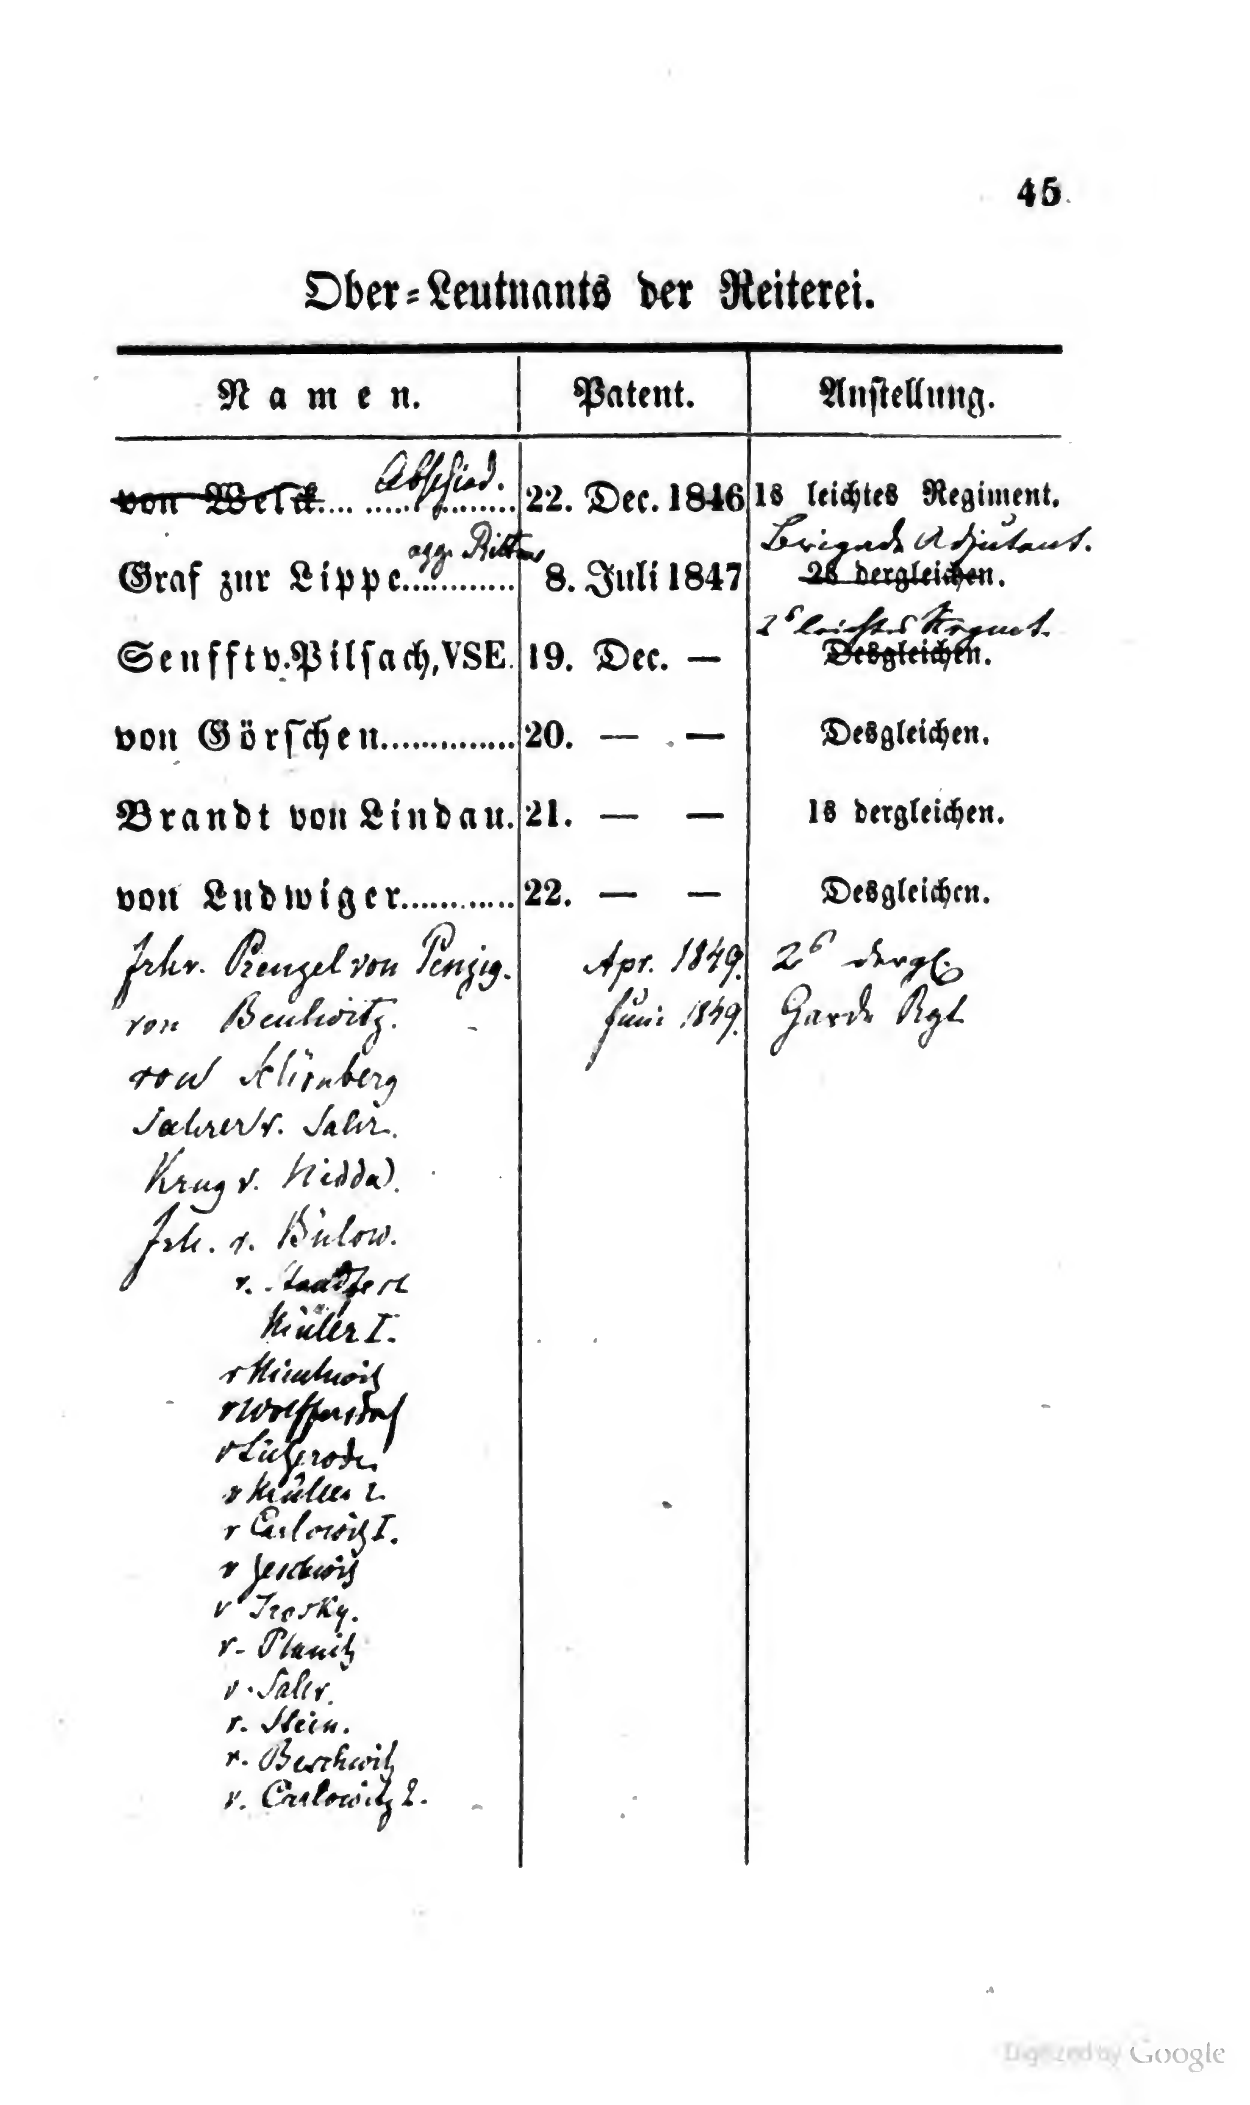 45
Ober-Leutnants der Reiterei.
Namen. Patent. Anstellung.
Abschied.
von Welck........... 22. Dec. 1846 1s leichtes Regiment.
agg. Rittm Brigade Adjutant.
Graf zur Lippe........... 8. Juli 1847 2s dergleichen.
2s leichtes Regmt.
Senfft v. Pilsach, VSE. 19. Dec. — Desgleichen.
von Görschen.............. 20. — — Desgleichen.
Brandt von Lindau. 21. — — 1s dergleichen.
von Ludwiger........... 22. — — Desgleichen.
Frhr. Prenzel von Penzig. Apr. 1849. 2s dergl.
von Beulwitz. Juni 1849. Garde Rgt
von Schönberg
Sahrer v. Sahr.
Krug v. Nidda.
Frh. v. Bülow.
v.
Müller I.
v Minckwitz
v Wolffersdorf
v Lützerode
v Müller 2.
v Carlowitz I.
v Zeschwitz
v Trosky.
v. Planitz
v. Sahr.
v. Stein.
v. Beschwitz
v. Carlowitz 2.
Digitized by Google